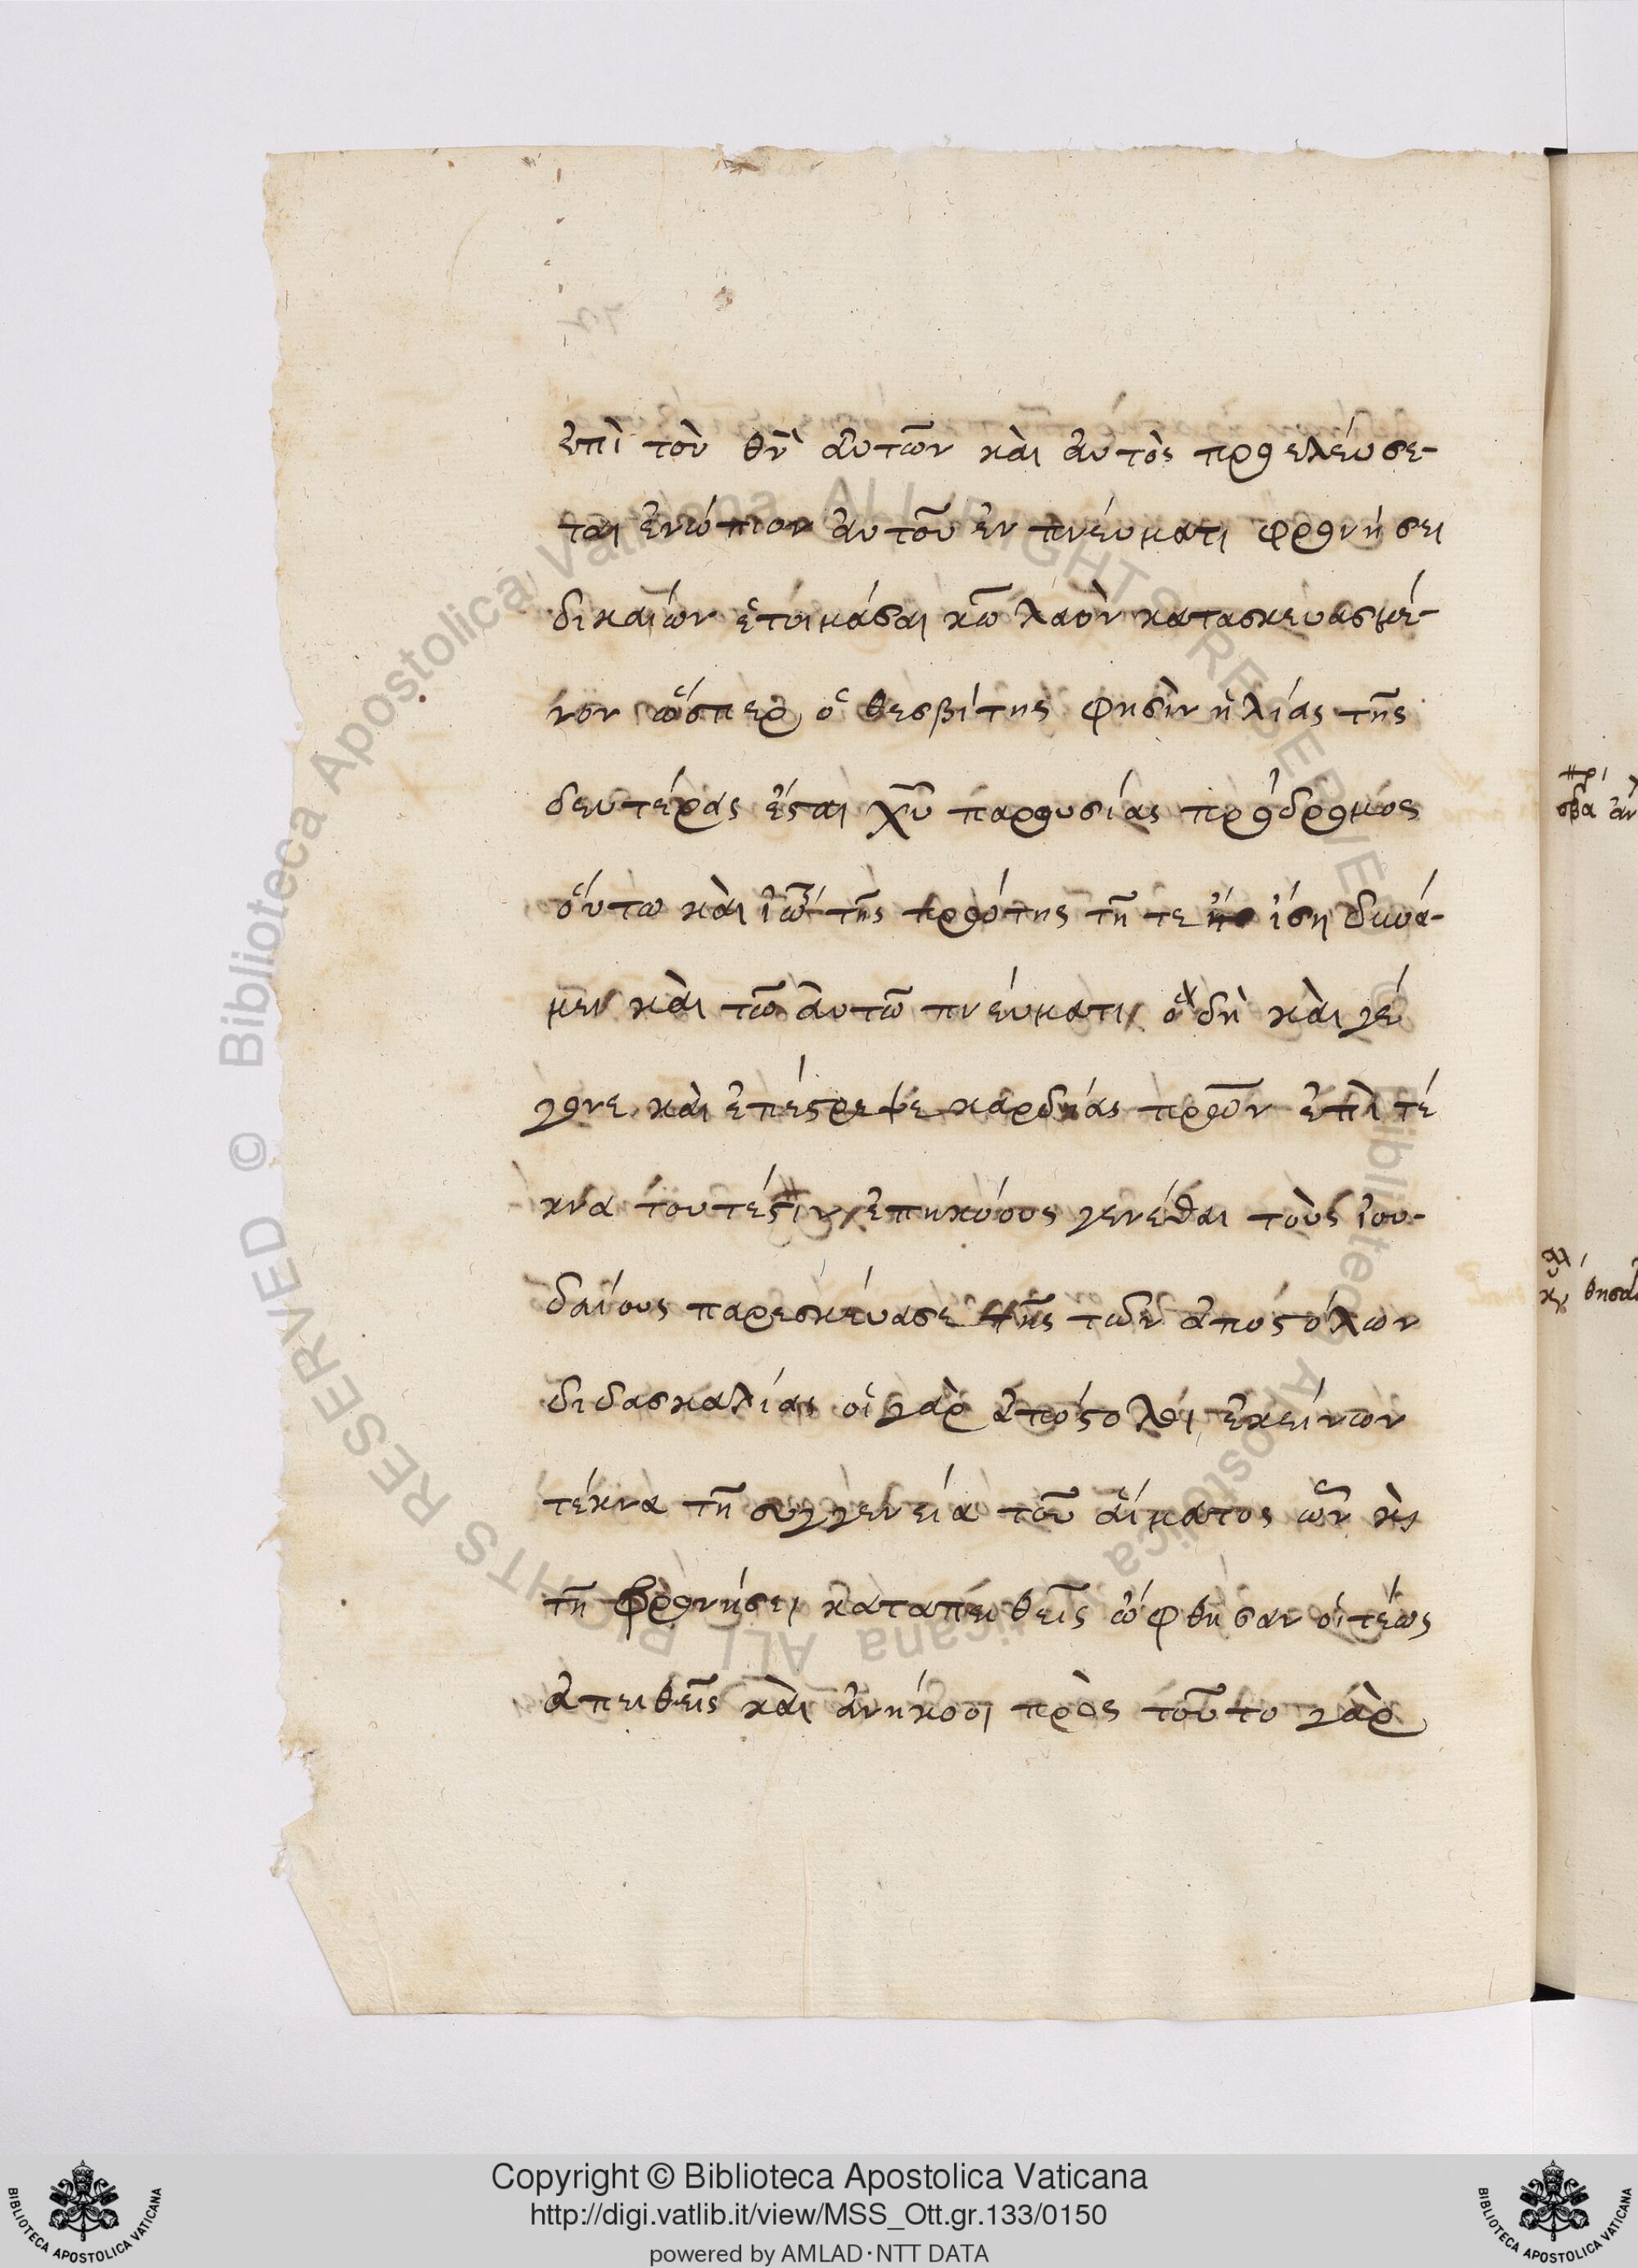 ἐπὶ τὸν θν̀ αὐτῶν καὶ αὐτὸς προελεύσε-
ται ἐνώπιον αὐτοῦ ἐν πνεύματι φρονήσει
δικαίων ἑτοιμάσαι κω̄ λαὸν κατασκευασμέ-
νον ὥσπερ ὁ θεσβίτης φησὶν ἡλίας τῆς
δευτέρας ἔσται χῡ παρουσίας πρόδρομος
οὕτω καὶ ἰω̄ τῆς πρώτης τῆ τε ἴση δυνά-
μει καὶ τῶ αὐτῶ πνεύματι ὃ δὴ καὶ γέ
γονε καὶ ἐπέστρεψε καρδίας πρων̄ ἐπὶ τέ
κνα τουτέστιν ἐπηκόους γενέσθαι τοὺς ἰου-
δαίους παρεσκεύασε τῆς τῶν ἀποστόλων
διδασκαλίας οἱ γὰρ ἀπόστολοι ἐκείνων
τέκνα τῆ συγγενεία τοῦ αἵματος ὧν κὶ
τῆ φρονήσει καταπειθεῖς ὤφθησαν οἱ τέως
ἀπειθεῖς καὶ ἀνήκοοι πρὸς τοῦτο γὰρ
Copyright © Biblioteca Apostolica Vaticana
http://digi.vatlib.it/view/MSS_Ott.gr.133/0150
powered by AMLAD·NTT DATA
BIBLIOTECA APOSTOLICA VATICANA
BIBLIOTECA APOSTOLICA VATICANA
© Biblioteca Apostolica Vaticana ALL RIGHTS RESERVED
© Biblioteca Apostolica Vaticana ALL RIGHTS RESERVED